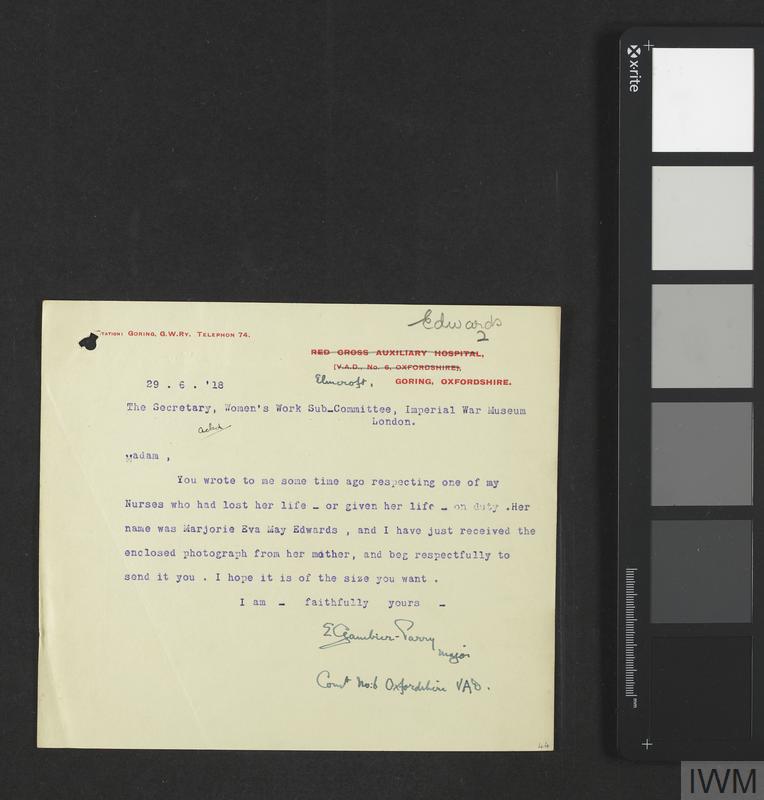 Edwards
2
STATION: GORING, G.W.RY. TELEPHON 74.
RED CROSS AUXILIARY HOSPITAL,
[V.A.D., No. 6, OXFORDSHIRE],
Elmcroft, GORING, OXFORDSHIRE.
29 . 6 . '18
The Secretary, Women's Work Sub-Committee, Imperial War Museum
London.
Madam ,
You wrote to me some time ago respecting one of my
Nurses who had lost her life - or given her life - on duty .Her
name was Marjorie Eva May Edwards , and I have just received the
enclosed photograph from her mother, and beg respectfully to
send it you . I hope it is of the size you want .
I am - faithfully yours -
E Gambier-Parry
Major
Comt No:6 Oxfordshire VAD.
44
x-rite
mm
IWM